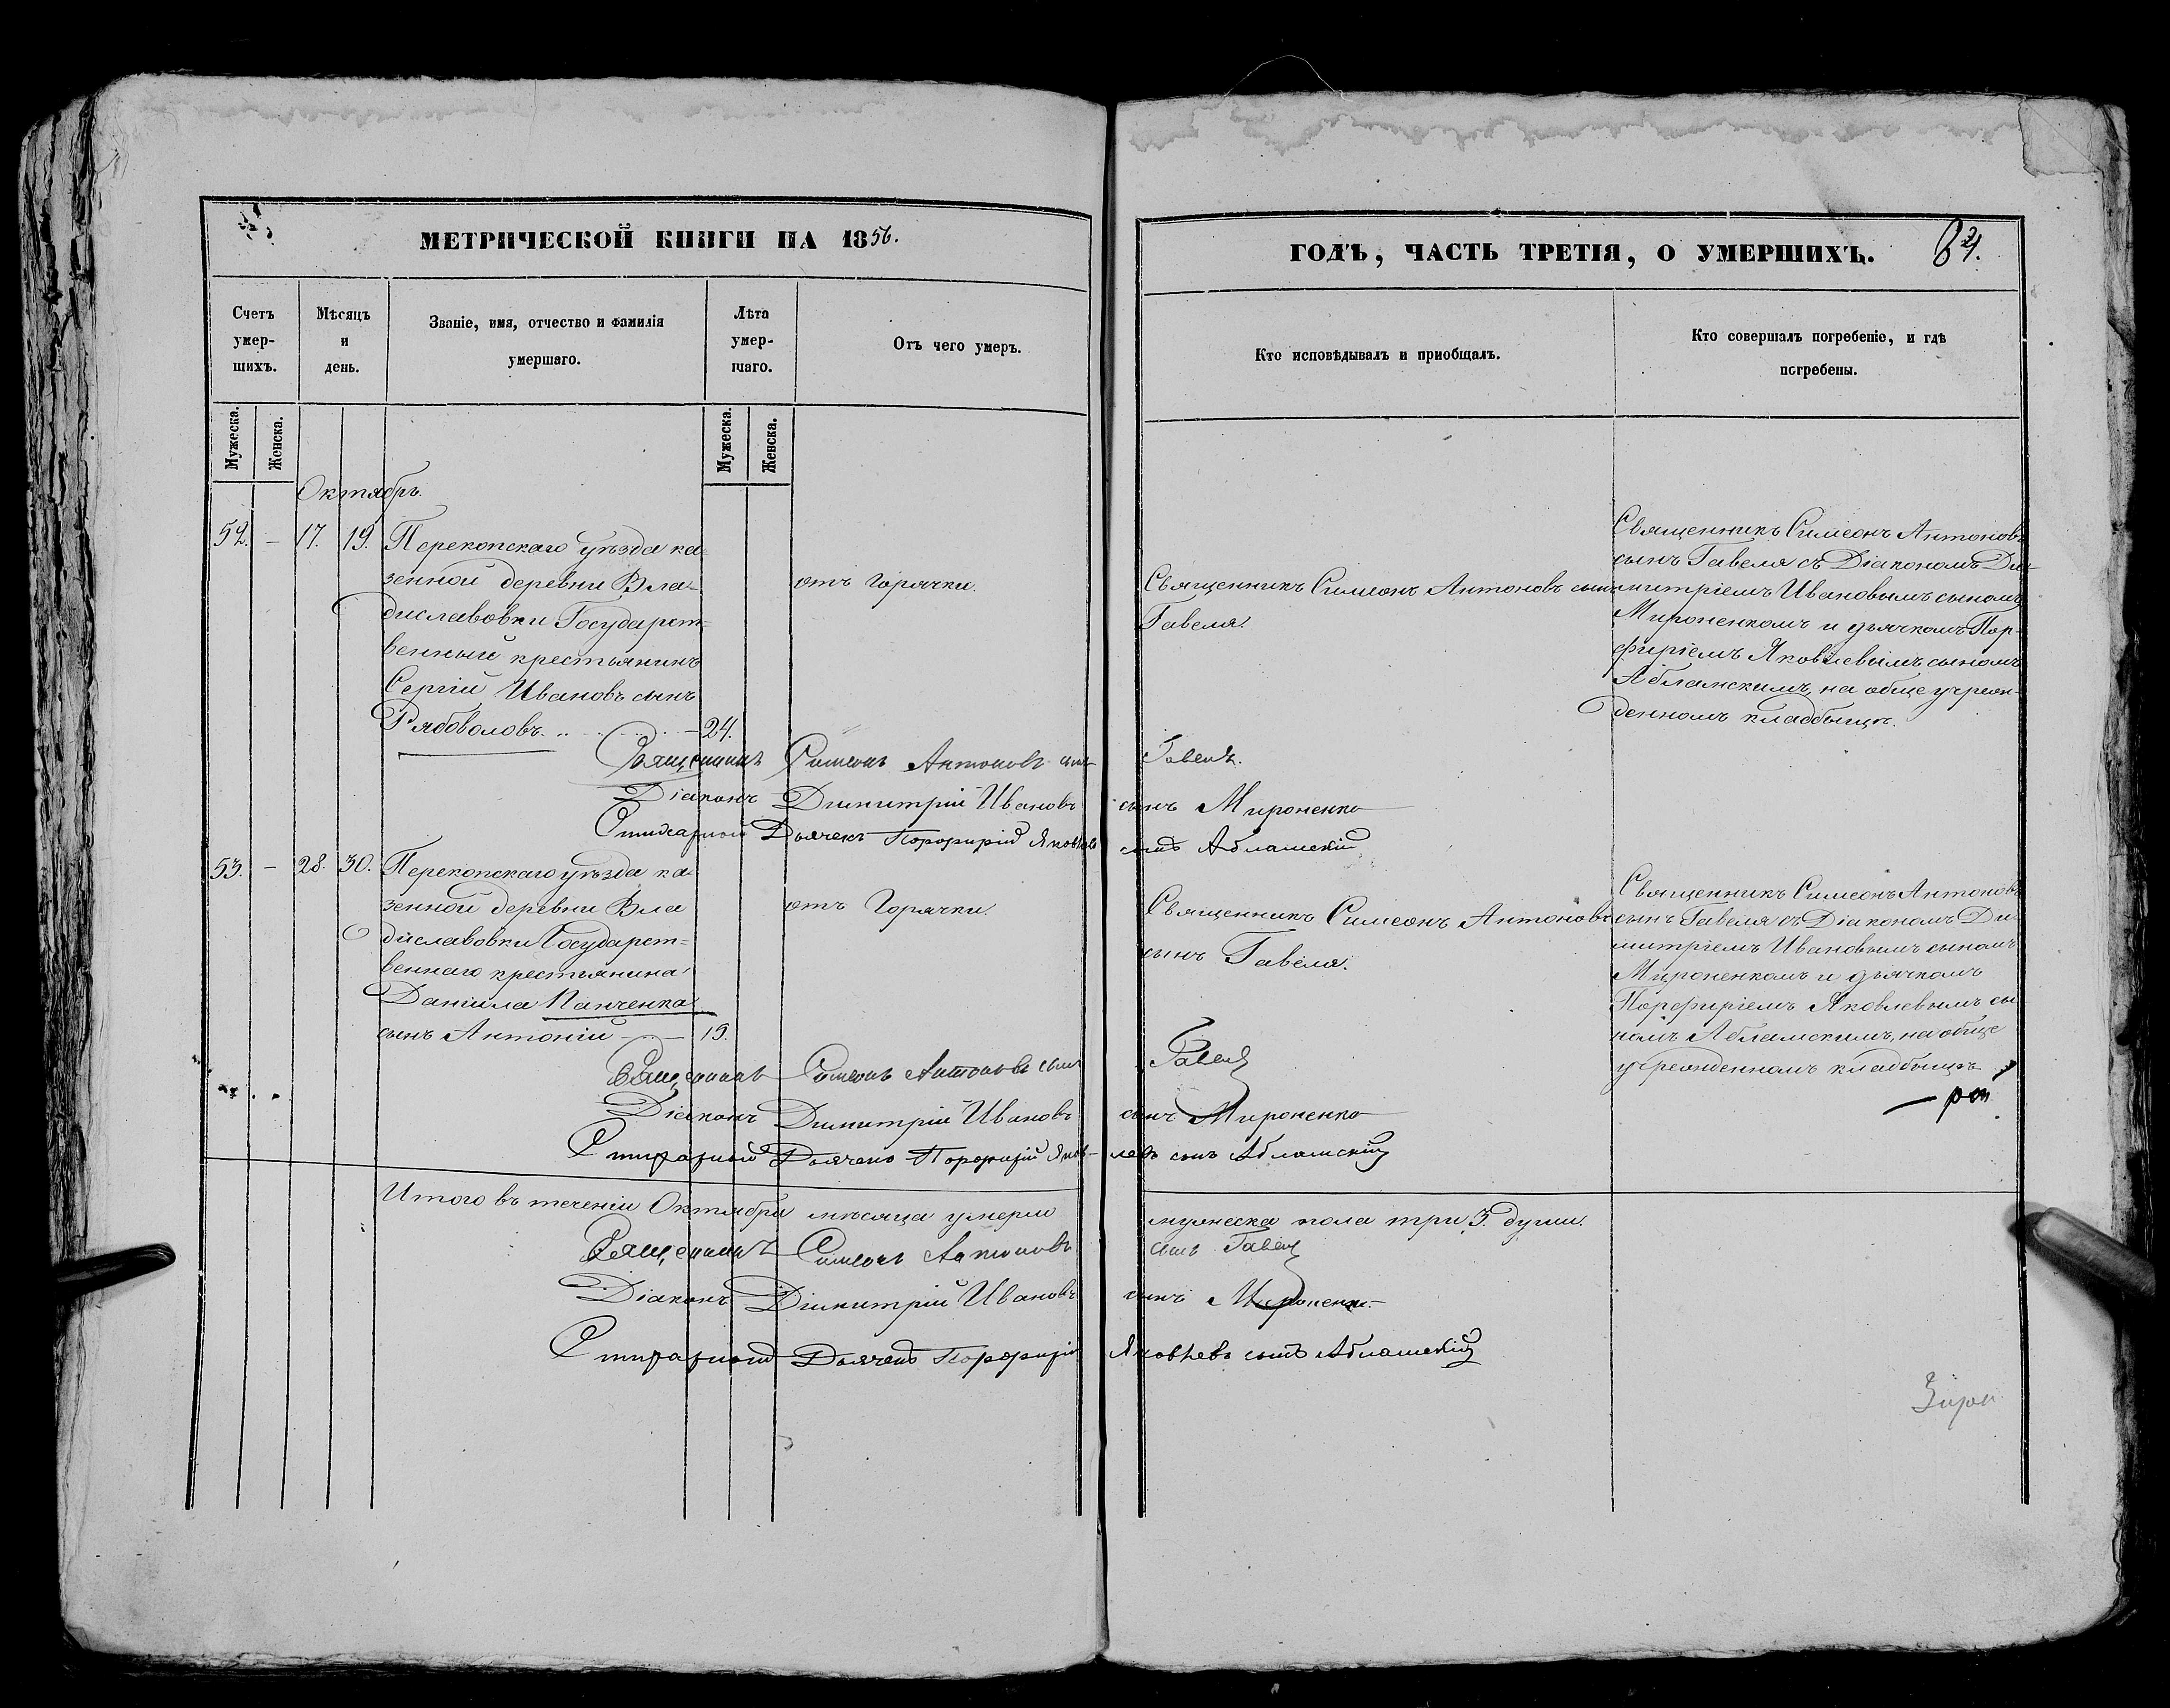 МЕТРИЧЕСКОЙ КНИГИ НА 1856.
Счетъ
умер-
шихъ.
Мѣсяцъ
и
день.
Званіе, имя, отчество и фамилія
умершаго.
Лѣта
умер-
шаго.
Отъ чего умеръ.
Мужеска.
Женска.
Мужеска.
Женска.
Октябрь.
52. – 17. 19. Перекопскаго уѣзда ка-
зенной деревни Вла-
диславовки Государст-
венный крестьянинъ
Сергій Ивановъ сынъ
Рябоволовъ. – 24.
отъ горячки.
Священникъ Симеонъ Антоновъ сынъ
Діаконъ Димитрій Ивановъ
Дьячекъ Порфирій Яковлевъ
53. – 28. 30. Перекопскаго уѣзда ка-
зенной деревни Вла
диславовки Государст=
веннаго крестьянина
Даніила Панченка
сынъ Антоній – 19.
отъ Горячки.
Священникъ Симеонъ Антоновъ сынъ
Діаконъ Димитрій Ивановъ
Дьячекъ Порфирій Яков-
Итого въ теченіи Октября мѣсяца умерло
Священникъ Симеонъ Антоновъ
Діаконъ Димитрій Ивановъ
Дьячекъ Порфирій
ГОДЪ, ЧАСТЬ ТРЕТІЯ, О УМЕРШИХЪ.
Кто исповѣдывалъ и пріобщалъ.
Кто совершалъ погребеніе, и гдѣ
погребены.
Священникъ Симеонъ Антоновъ сынъ
Гавеля.
Священникъ Симеонъ Антоновъ
сынъ Гавеля съ Діакономъ Ди-
митріемъ Ивановымъ сыномъ
Мироненкомъ и дьячкомъ Пор-
фиріемъ Яковлевымъ сыномъ
Абламскимъ, на обще учреж-
денномъ кладбищѣ.
Гавеля.
сынъ Мироненко
сынъ Абламскій
Священникъ Симеонъ Антоновъ
сынъ Гавеля.
Священникъ Симеонъ Антоновъ
сынъ Гавеля съ Діакономъ Ди-
митріемъ Ивановымъ сыномъ
Мироненкомъ и дьячкомъ
Порфиріемъ Яковлевымъ сы
номъ Абламскимъ, на обще
учрежденномъ кладбищѣ
Гавеля
сынъ Мироненко
левъ сынъ Абламскій
мужеска пола три 3. души.
сынъ Гавеля
сынъ Мироненко.
Яковлевъ сынъ Абламскій